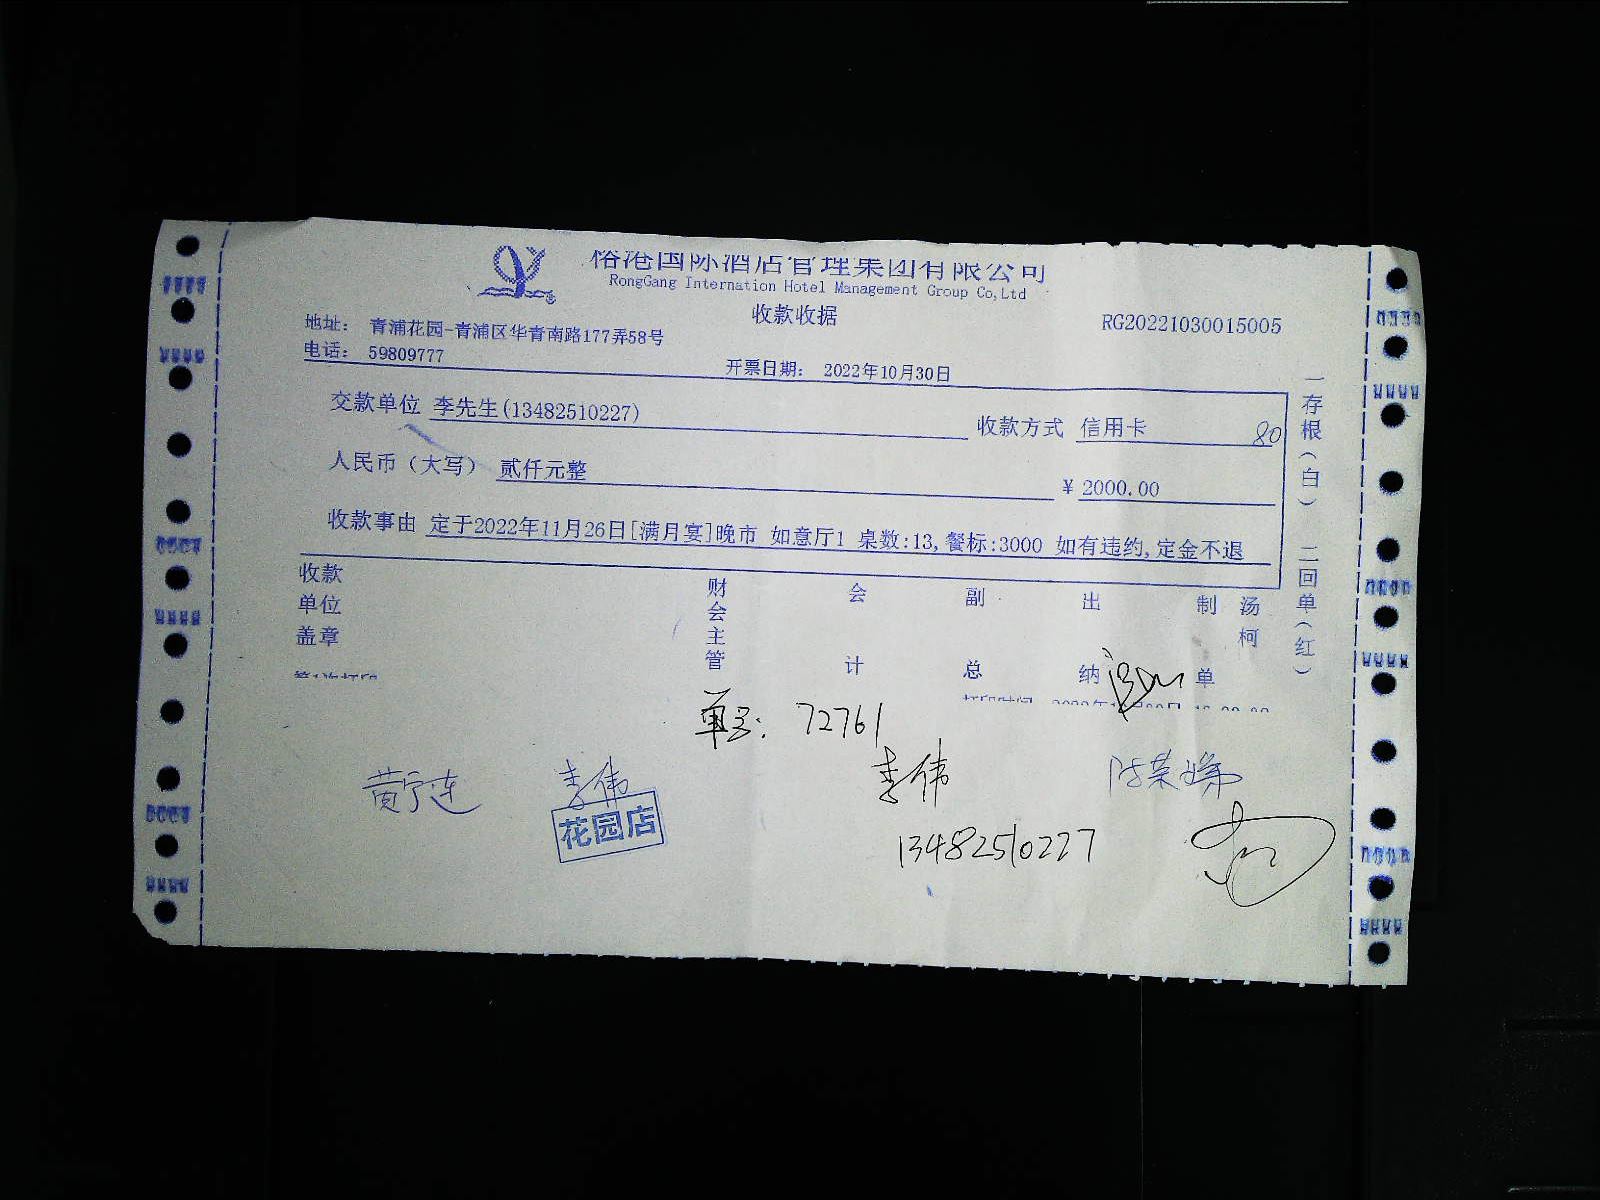 榕港国际酒店管理集团有限公司
RongGang Internation Hotel Management Group Co,Ltd
收款收据
RG20221030015005
地址： 青浦花园-青浦区华青南路177弄58号
电话： 59809777
开票日期： 2022年10月30日
交款单位 李先生(13482510227)
收款方式 信用卡 80
人民币（大写） 贰仟元整
¥ 2000.00
收款事由 定于2022年11月26日[满月宴]晚市 如意厅1 桌数:13,餐标:3000 如有违约,定金不退
一存根（白） 二回单（红）
收款单位盖章
财会主管
会计
副总
出纳
制单 汤柯
第1次打印
打印时间
单号: 72761
黄宁连
李伟
李伟
陈荣
花园店
13482510227